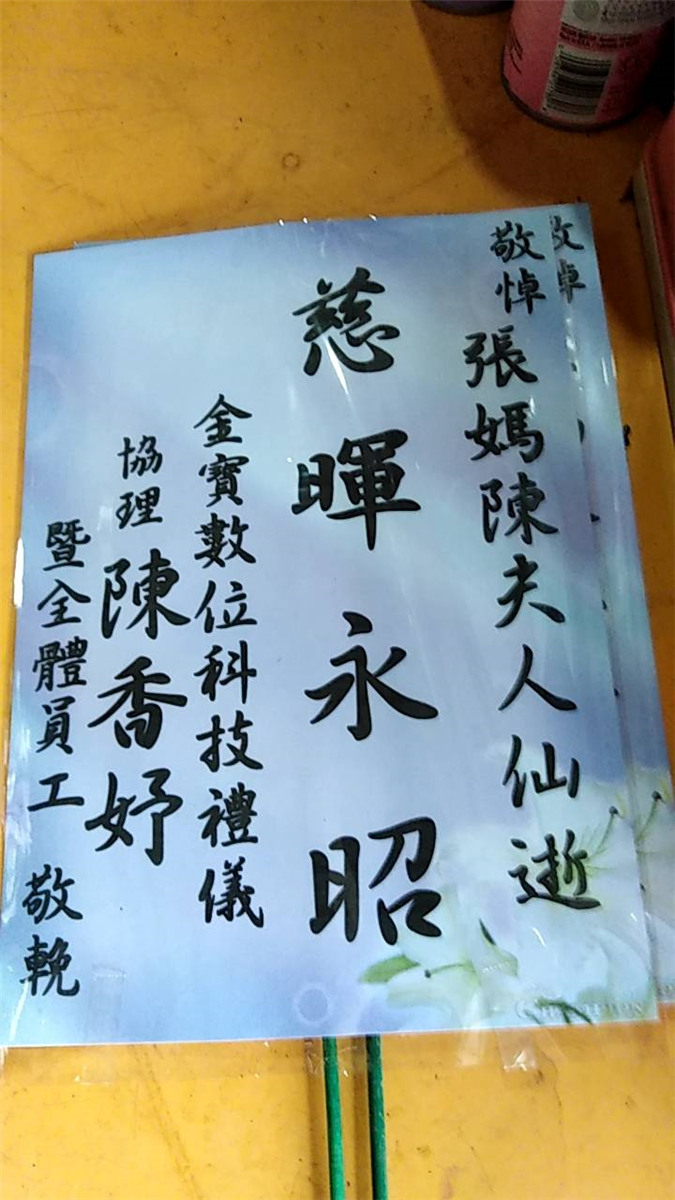 敬悼
敬悼張媽陳夫人仙逝
慈暉永昭
金寶數位科技禮儀
協理陳香妤
暨全體員工 敬輓